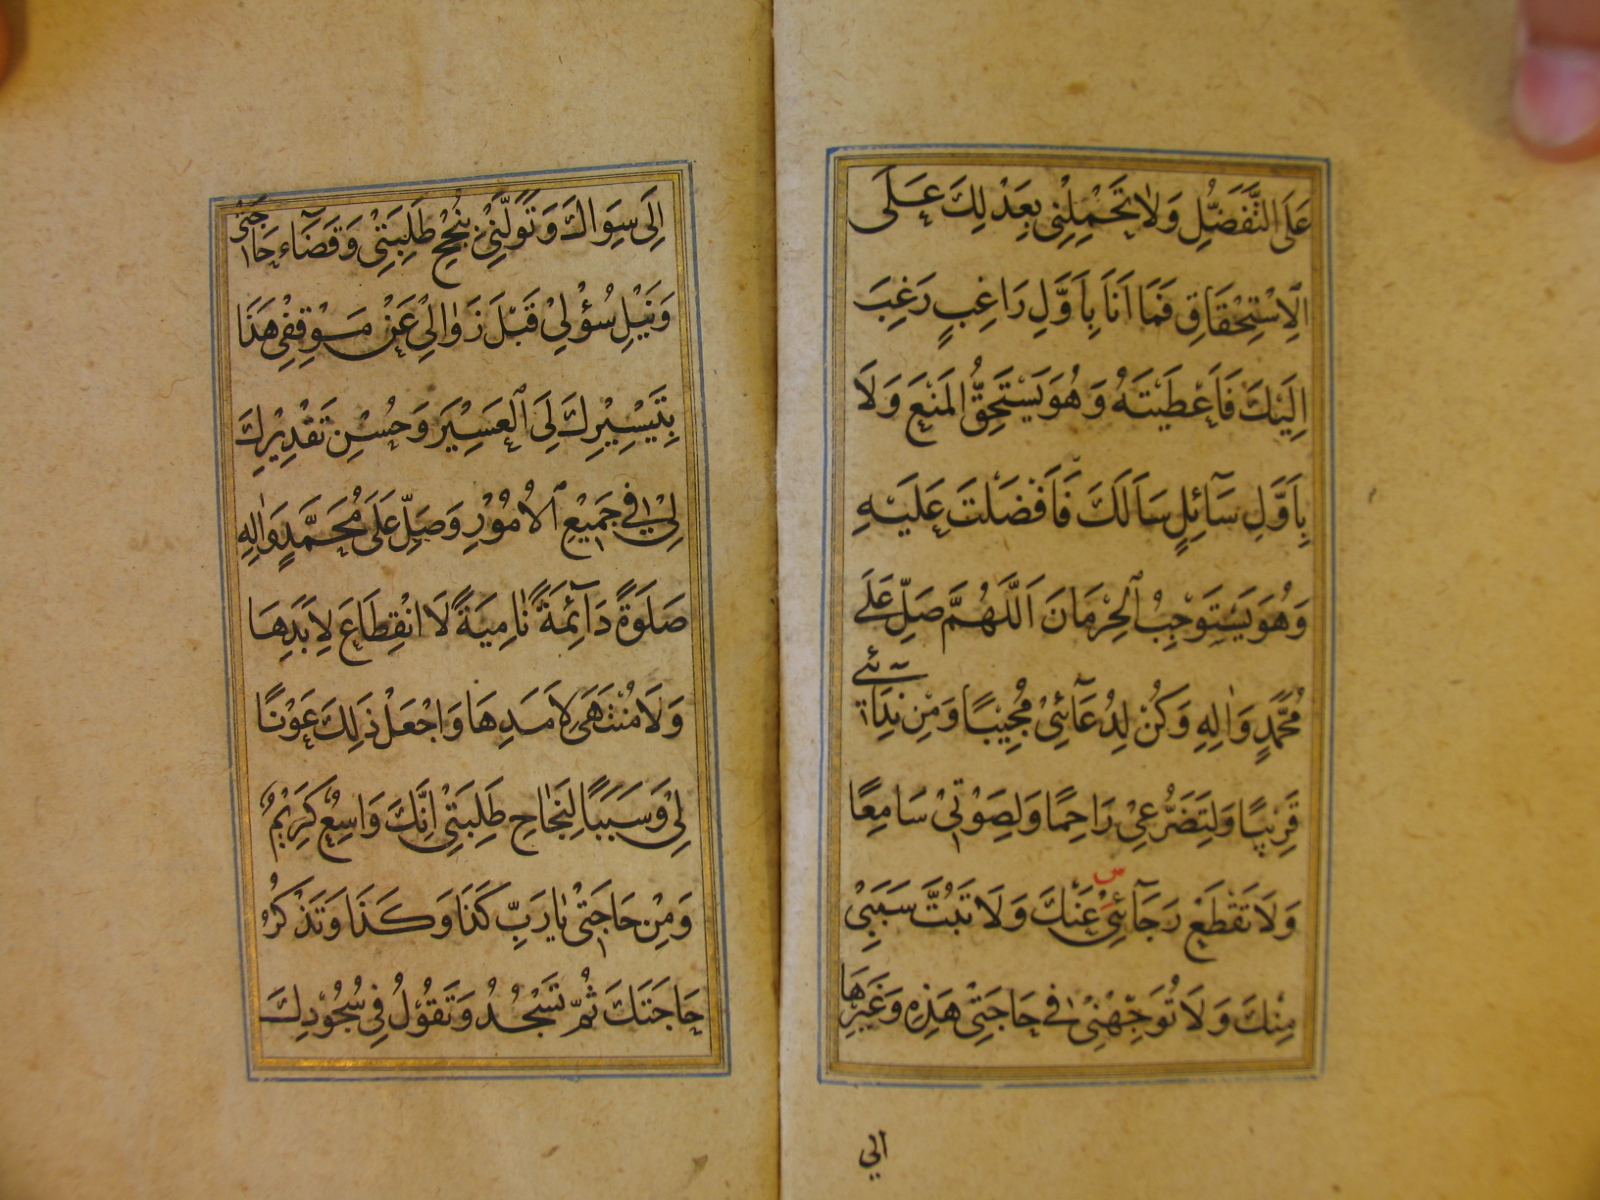 عَلَى التَّفَضُّلِ وَلَا تَحْمِلْنِي بِعَدْلِكَ عَلَى
الِاسْتِحْقَاقِ فَمَا اَنَا بِاَوَّلِ رَاغِبٍ رَغِبَ
اِلَيْكَ فَاَعْطَيْتَهُ وَهُوَ يَسْتَحِقُّ الْمَنْعَ وَلَا
بِاَوَّلِ سَآئِلٍ سَاَلَكَ فَاَفْضَلْتَ عَلَيْهِ
وَهُوَ يَسْتَوْجِبُ الْحِرْمَانَ اَللّٰهُمَّ صَلِّ عَلَى
مُحَمَّدٍ وَاٰلِهِ وَكُنْ لِدُعَآئِيْ مُجِيْبًا وَمِنْ نِدَآئِيْ
قَرِيْبًا وَلِتَضَرُّعِيْ رَاحِمًا وَلِصَوْتِيْ سَامِعًا
وَلَا تَقْطَعْ رَجَآئِيْ عَنْكَ وَلَا تَبُتَّ سَبَبِيْ
مِنْكَ وَلَا تُوَجِّهْنِيْ فِي حَاجَتِيْ هٰذِهِ وَغَيْرِهَا
الي
اِلَى سِوَاكَ وَتَوَلَّنِيْ بِنُجْحِ طَلِبَتِيْ وَقَضَآءِ حَاجَتِيْ
وَنَيْلِ سُؤْلِيْ قَبْلَ زَوَالِيْ عَنْ مَوْقِفِيْ هٰذَا
بِتَيْسِيْرِكَ لِيَ الْعَسِيْرَ وَحُسْنِ تَقْدِيْرِكَ
لِيْ فِي جَمِيْعِ الْاُمُوْرِ وَصَلِّ عَلَى مُحَمَّدٍ وَاٰلِهِ
صَلَوةً دَآئِمَةً نَامِيَةً لَا انْقِطَاعَ لِاَبَدِهَا
وَلَا مُنْتَهَى لِاَمَدِهَا وَاجْعَلْ ذٰلِكَ عَوْنًا
لِيْ وَسَبَبًا لِنَجَاحِ طَلِبَتِيْ اِنَّكَ وَاسِعٌ كَرِيْمٌ
وَمِنْ حَاجَتِيْ يَا رَبِّ كَذَا وَكَذَا وَتَذْكُرُ
حَاجَتَكَ ثُمَّ تَسْجُدُ وَتَقُوْلُ فِي سُجُوْدِكَ